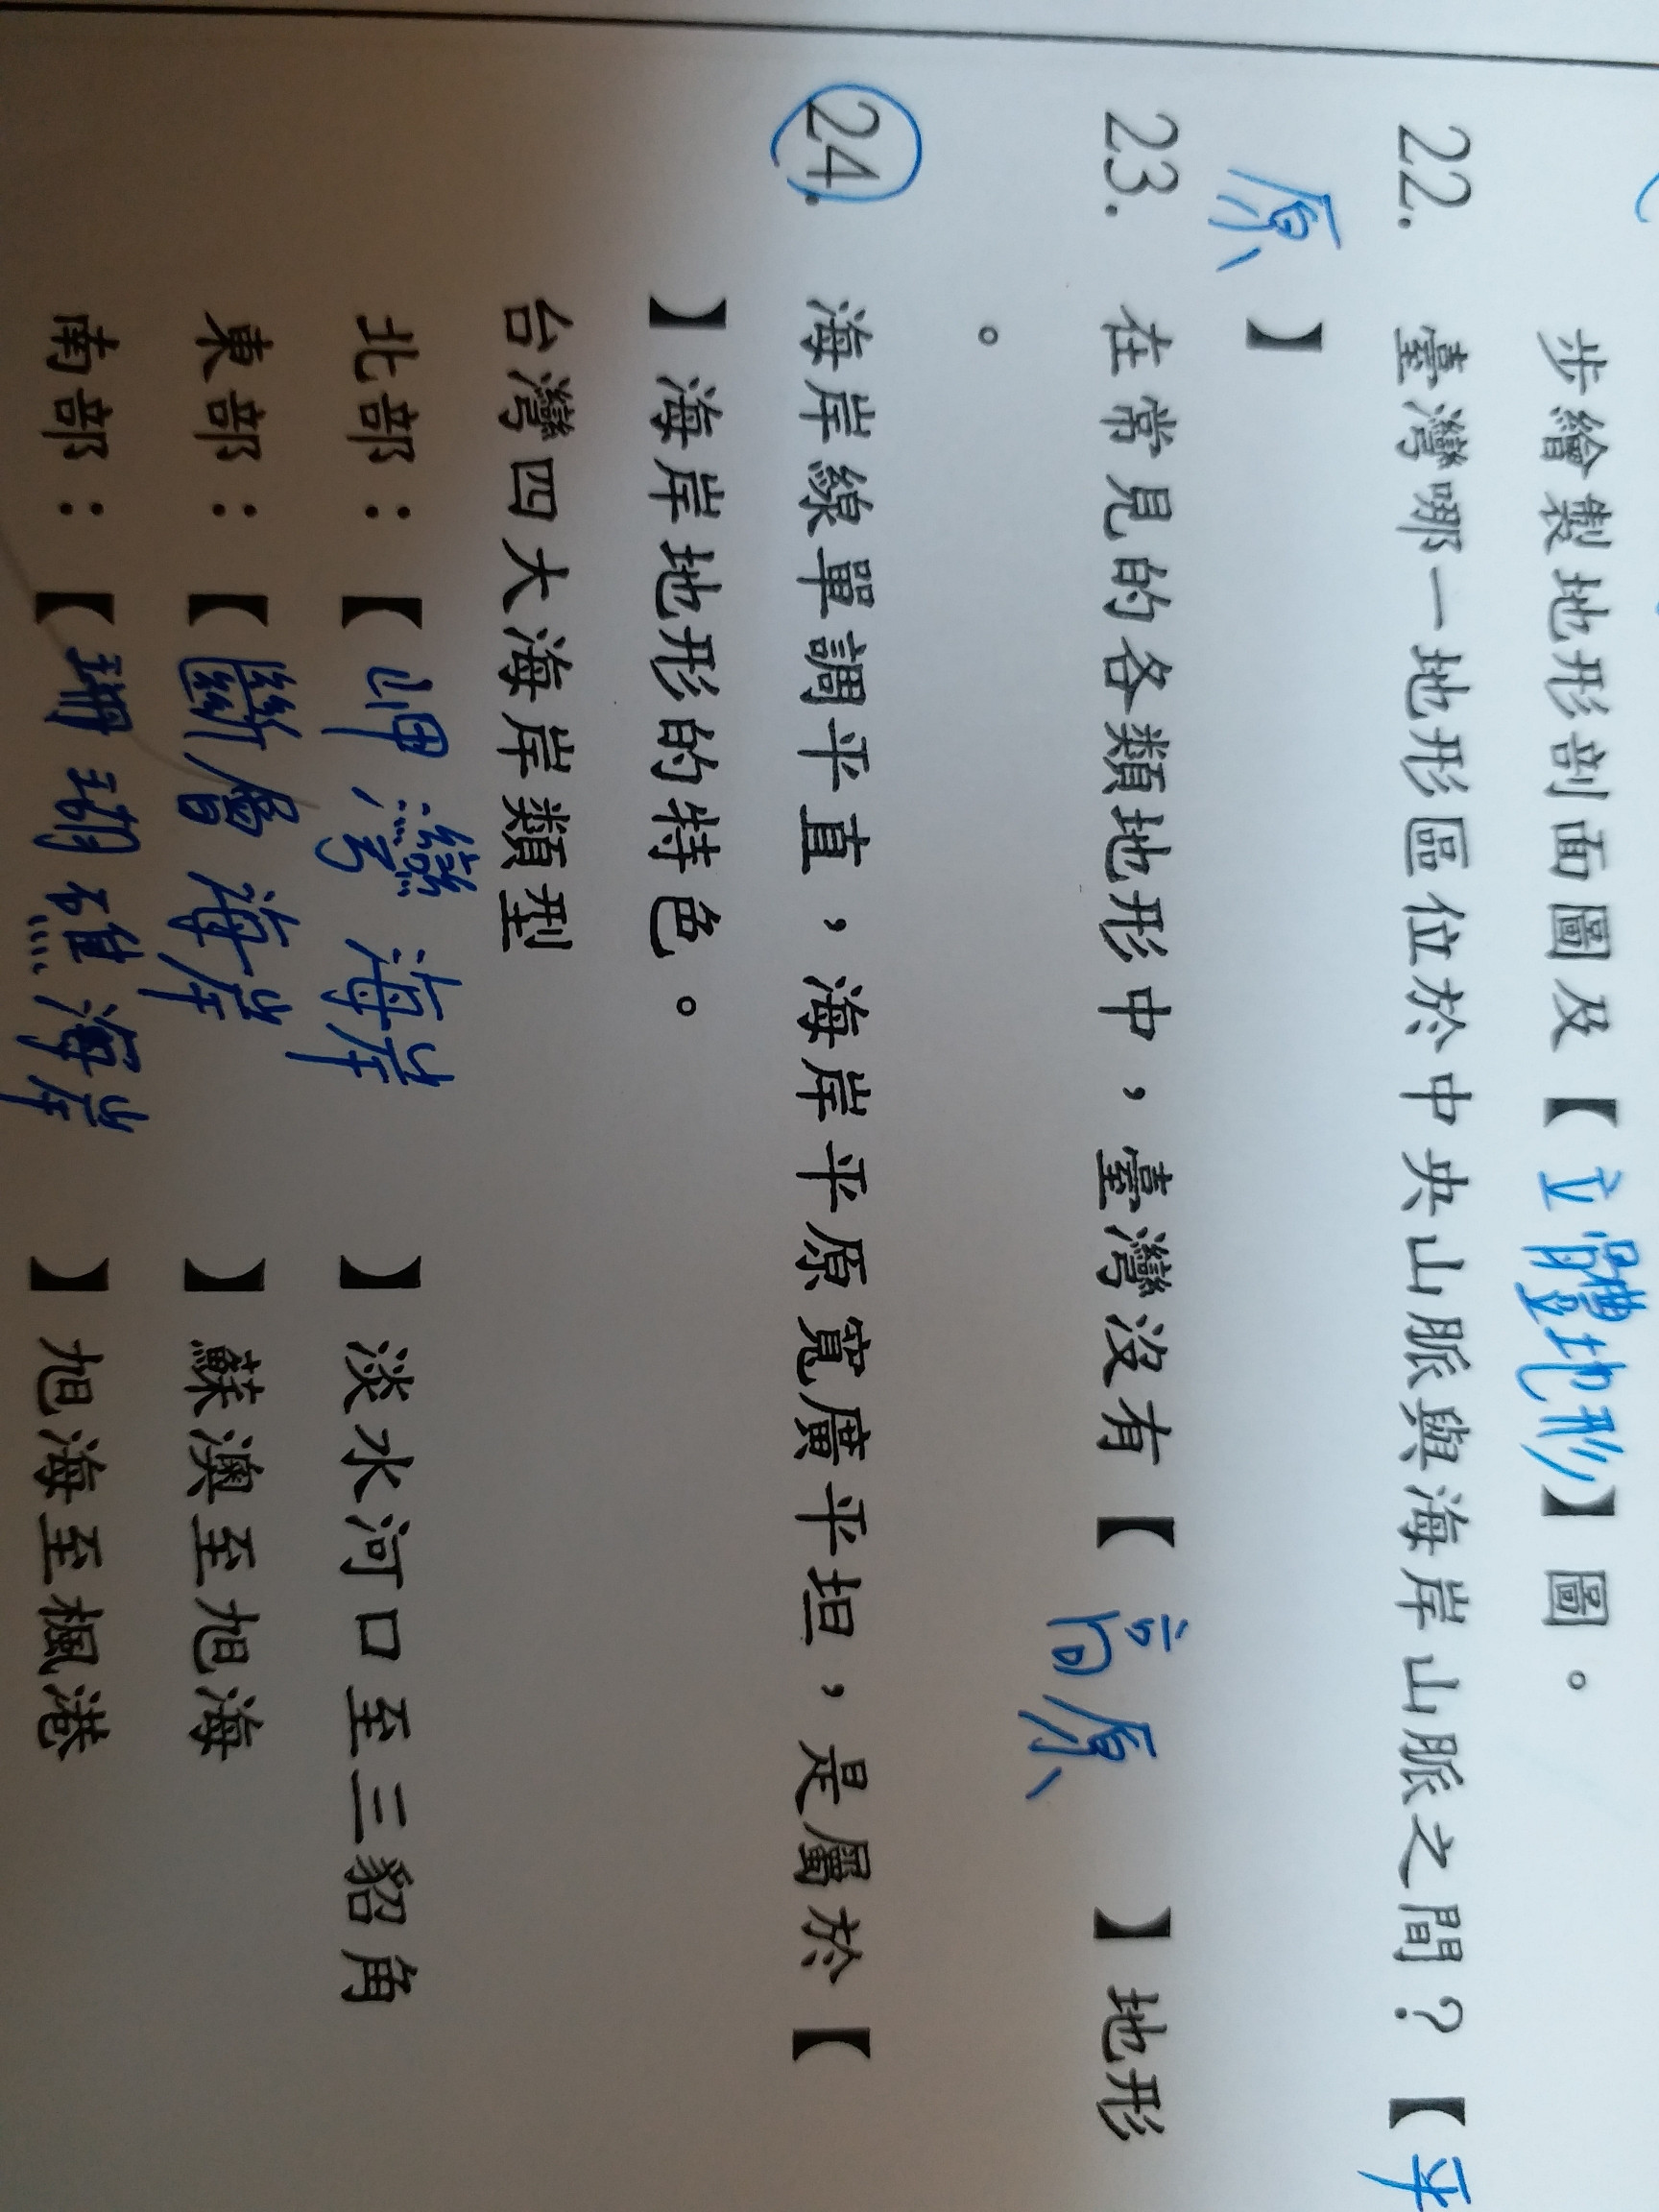 步繪製地形剖面圖及【立體地形】圖。
22. 臺灣哪一地形區位於中央山脈與海岸山脈之間？【平
原】
23. 在常見的各類地形中，臺灣沒有【高原】地形
。
24. 海岸線單調平直，海岸平原寬廣平坦，是屬於【
】海岸地形的特色。
台灣四大海岸類型
北部：【岬灣海岸】淡水河口至三貂角
東部：【斷層海岸】蘇澳至旭海
南部：【珊瑚礁海岸】旭海至楓港